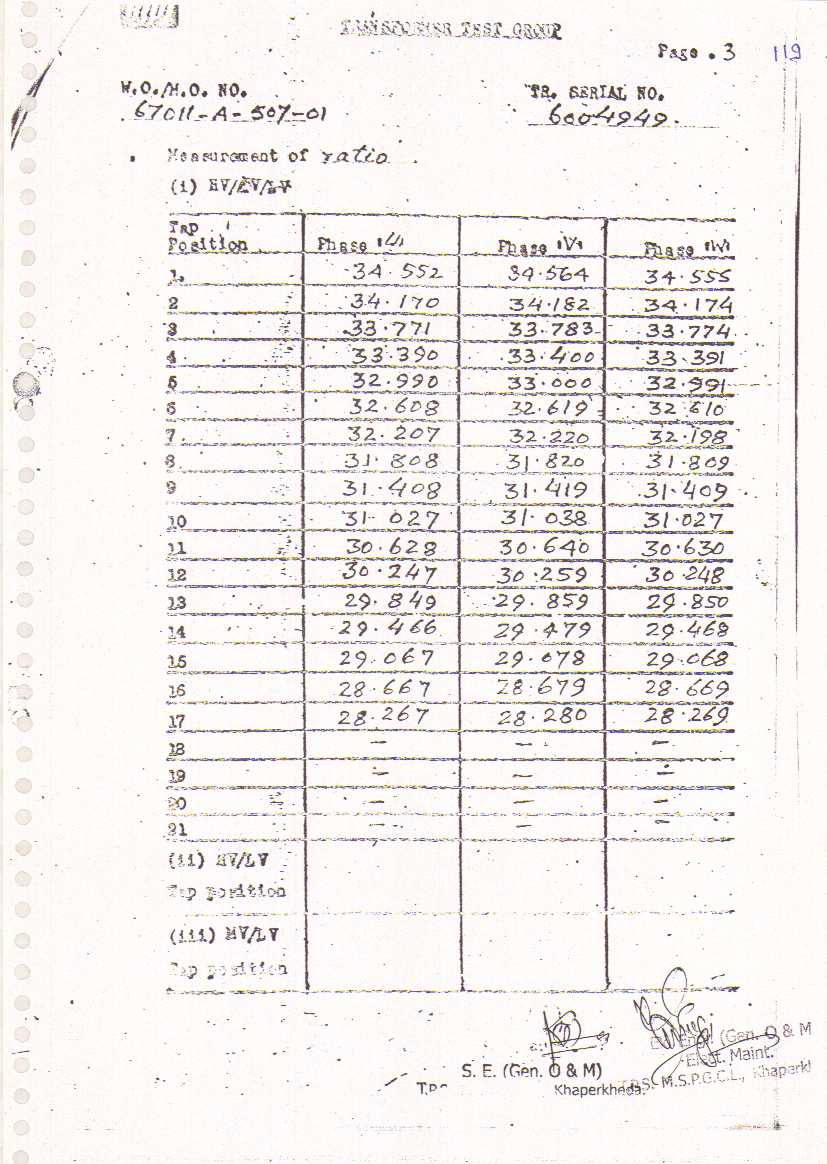 TRANSFORMER TEST GROUP
Page . 3 119
W.O./M.O. NO. TR. SERIAL NO.
67011-A-507-01 6004949.
Measurement of ratio.
(i) HV/LV
Tap
Position Phase 'U' Phase 'V' Phase 'W'
1. 34.552 34.564 34.555
2 34.170 34.182 34.174
3 33.771 33.783 33.774
4 33.390 33.400 33.391
5 32.990 33.000 32.991
6 32.608 32.619 32.610
7. 32.207 32.220 32.198
8 31.808 31.820 31.809
9 31.408 31.419 31.409
10 31.027 31.038 31.027
11 30.628 30.640 30.630
12 30.247 30.259 30.248
13 29.849 29.859 29.850
14 29.466 29.479 29.468
15 29.067 29.078 29.068
16 28.667 28.679 28.669
17 28.267 28.280 28.269
18 - - -
19 - - -
20 - - -
21 - - -
(ii) HV/LV
Tap position
(iii) HV/LV
Tap position
Engr. (Gen. O & M
S. E. (Gen. O & M) Elect. Maint.
Khaperkheda. M.S.P.G.C.L., Khaperkh